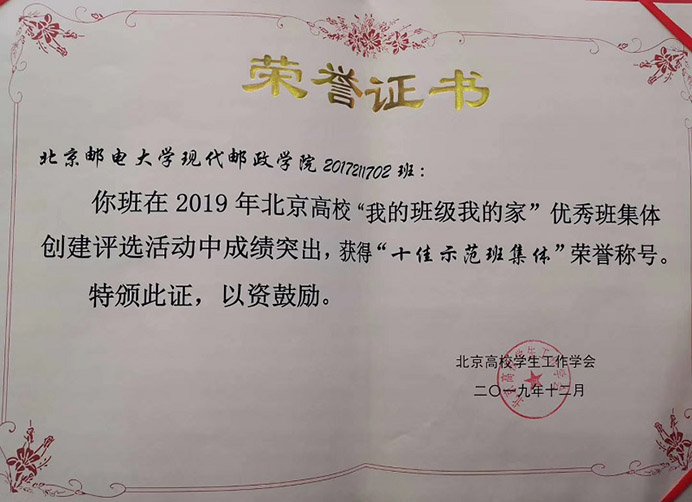 荣誉证书
北京邮电大学现代邮政学院2017211702班：
你班在2019年北京高校“我的班级我的家”优秀班集体
创建评选活动中成绩突出，获得“十佳示范班集体”荣誉称号。
特颁此证，以资鼓励。
北京高校学生工作学会
二〇一九年十二月